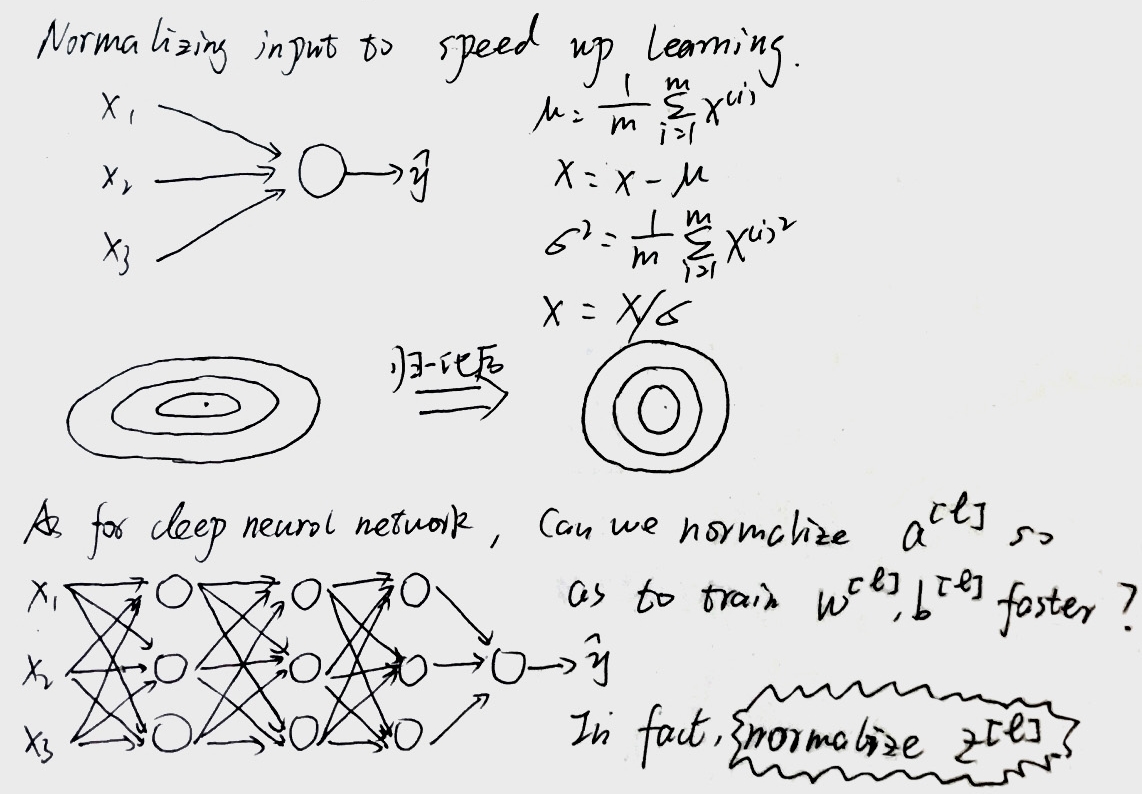 Normalizing input to speed up learning.
x₁
x₂
x₃
ŷ
μ = 1/m Σᵢ₌₁ᵐ x⁽ⁱ⁾
x = x - μ
σ² = 1/m Σᵢ₌₁ᵐ x⁽ⁱ⁾²
x = x/σ
归一化后
As for deep neural network, Can we normalize a^[l] so
as to train w^[l], b^[l] faster?
x₁
x₂
x₃
ŷ
In fact, normalize z^[l]